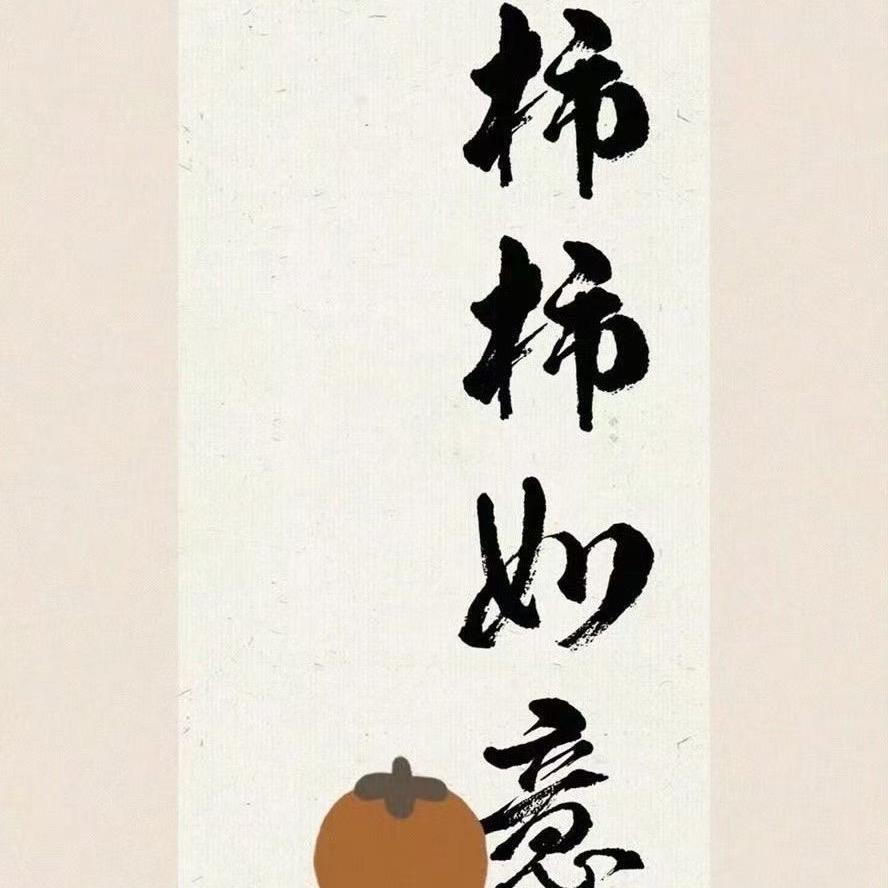 柿柿如意